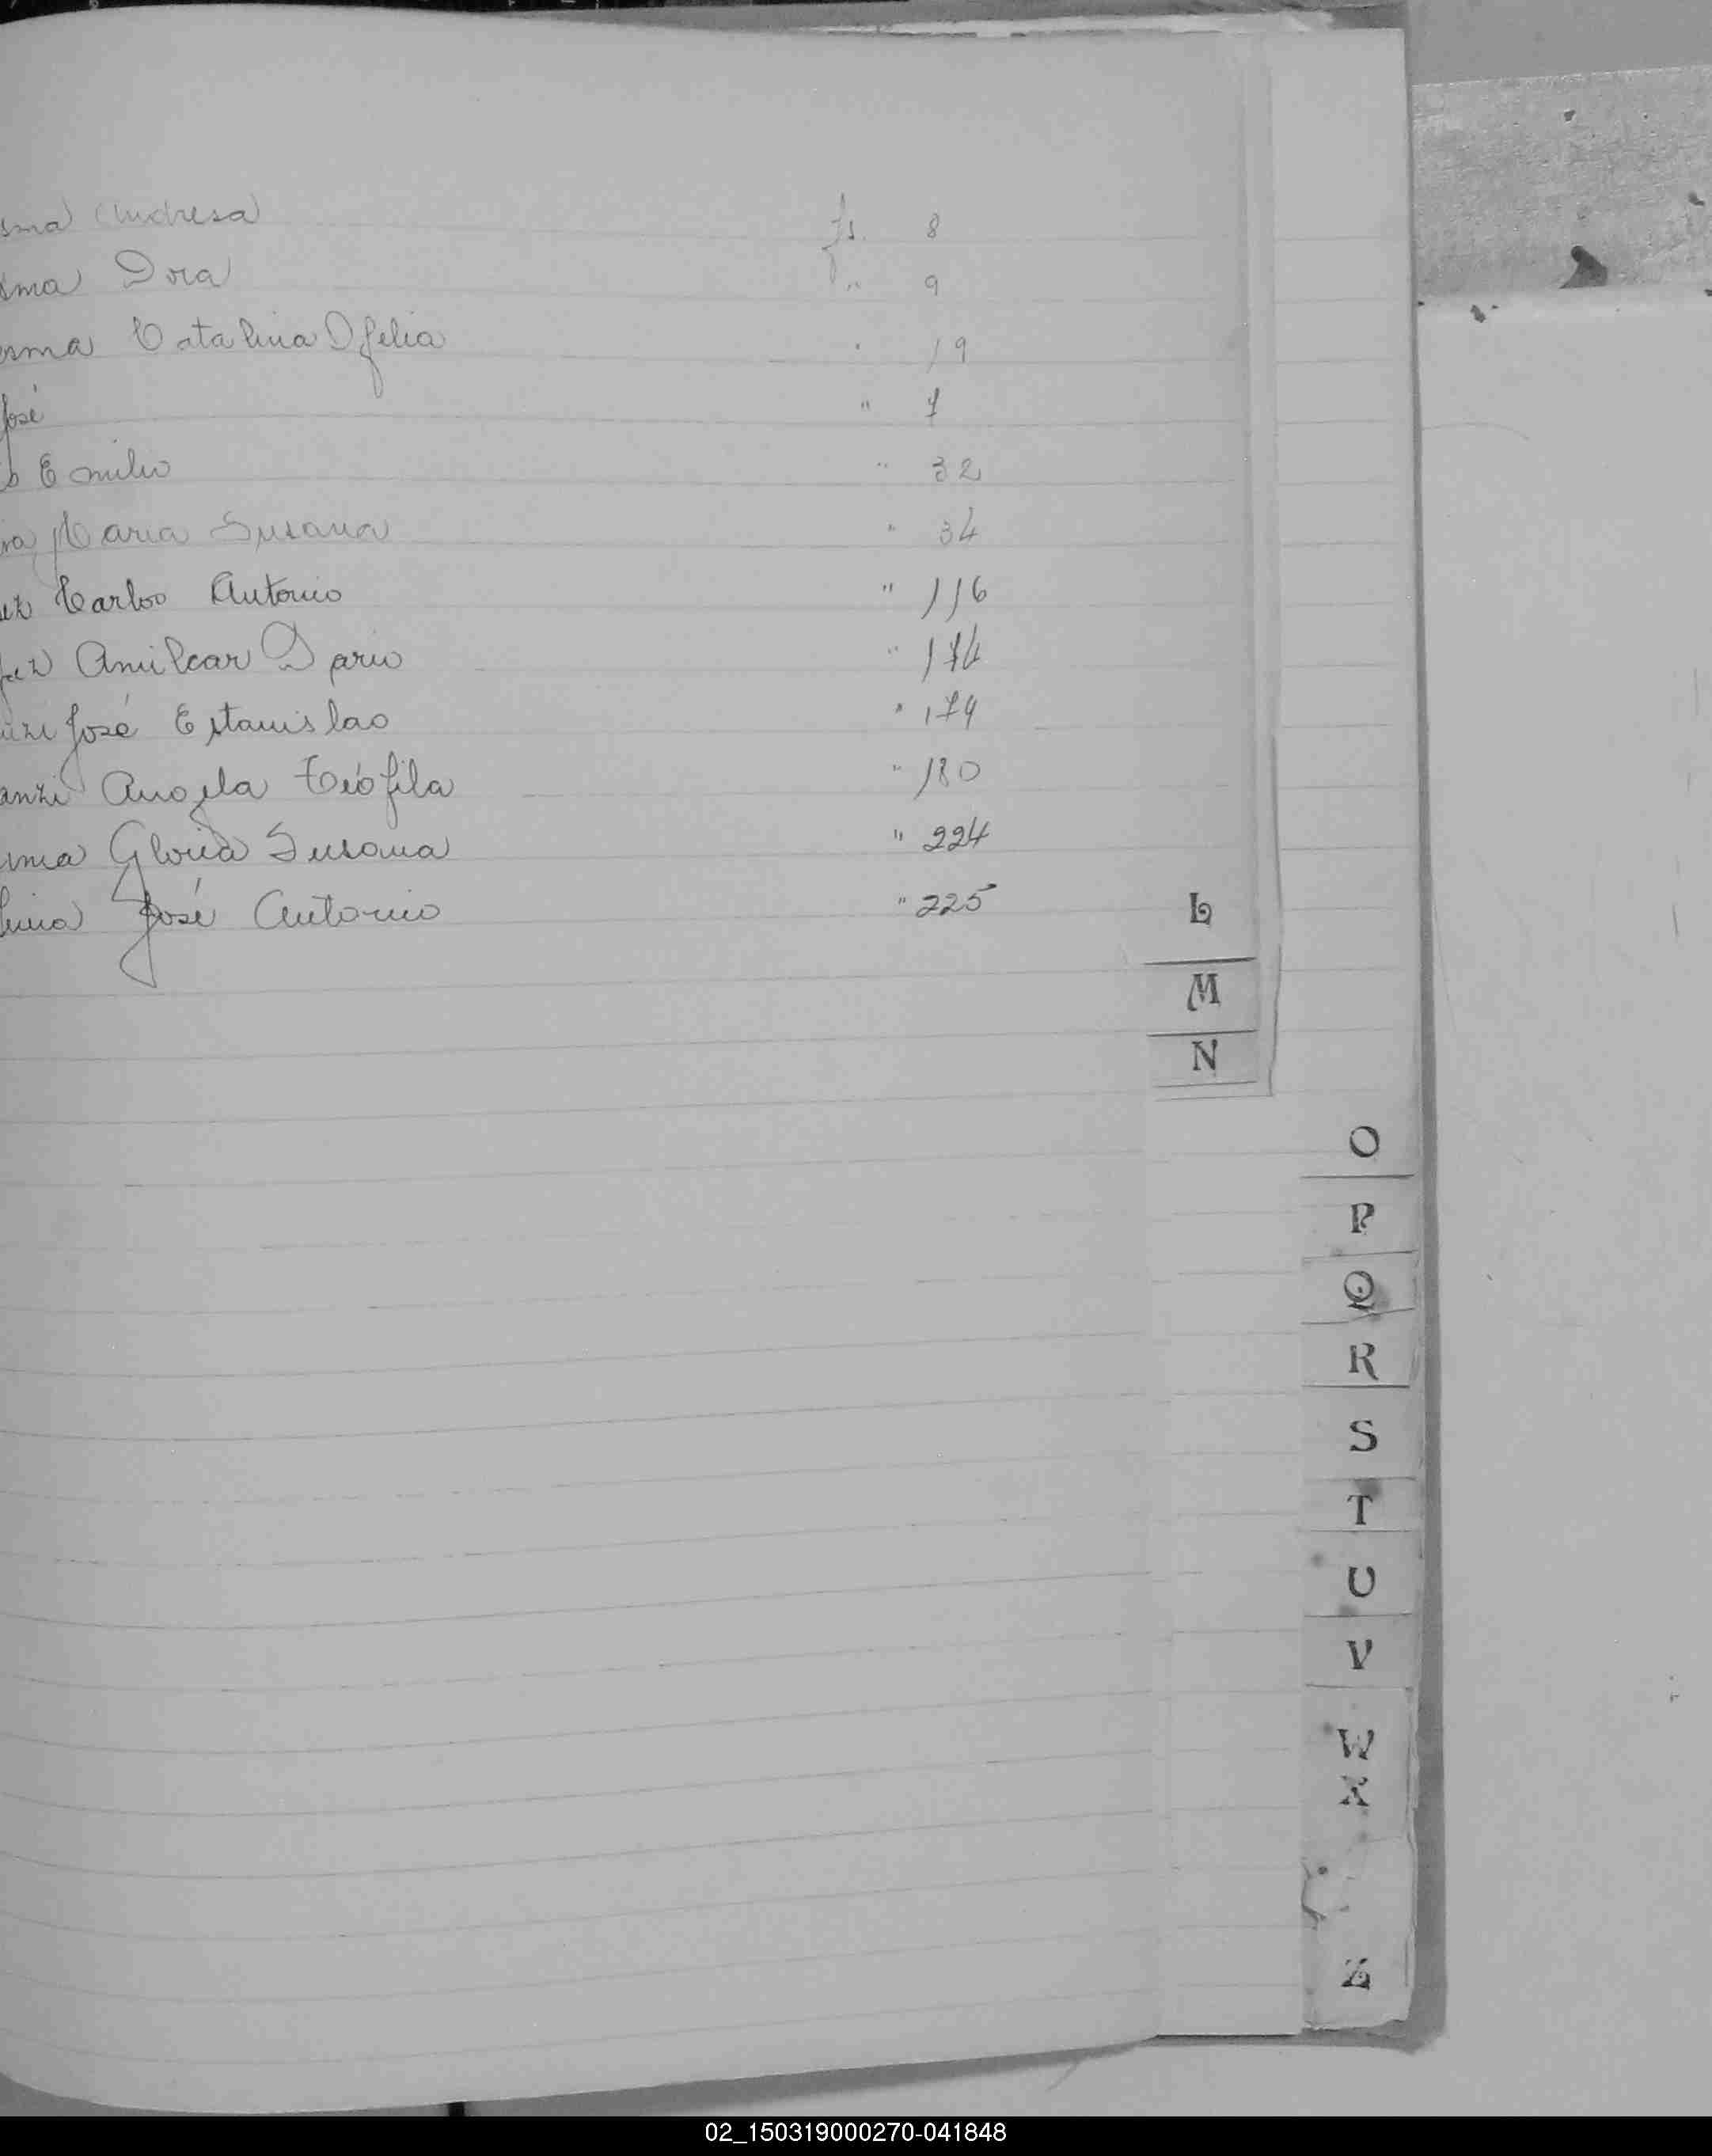 sma Andresa fs. 8
sma Dora " 9
esma Catalina Ofelia " 19
José " 7
o Emilio " 32
ra Maria Susana " 34
ez Carlos Antonio " 116
ez Amilcar Dario " 174
José Estanislao " 179
anzi Angela Teófila " 180
sma Gloria Susana " 224
José Antonio " 225
L
M
N
O
P
Q
R
S
T
U
V
W
X
Z
02_150319000270-041848